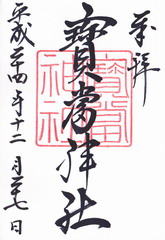 奉拝
寳當神社
寳當神社
平成二十四年十二月二十七日